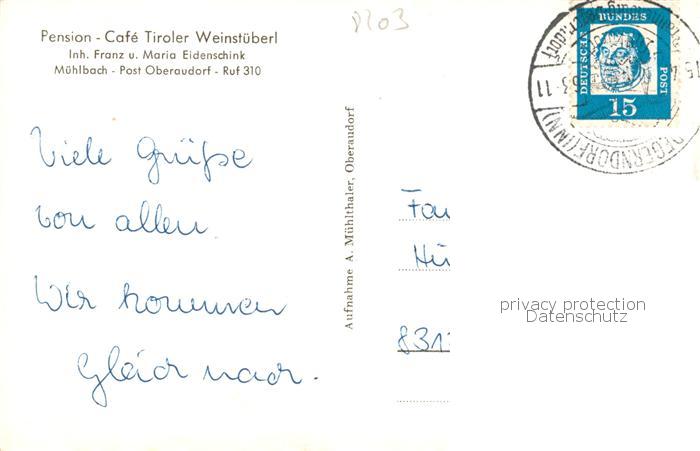 Pension - Café Tiroler Weinstüberl
Inh. Franz u. Maria Eidenschink
Mühlbach - Post Oberaudorf - Ruf 310
Viele Grüße
von allen.
Wir kommen
gleich nach.
Aufnahme A. Mühlthaler, Oberaudorf
DEUTSCHE
BUNDES
POST
15
DEGERNDORF (INN)
Fa
Hü
831
privacy protection
Datenschutz